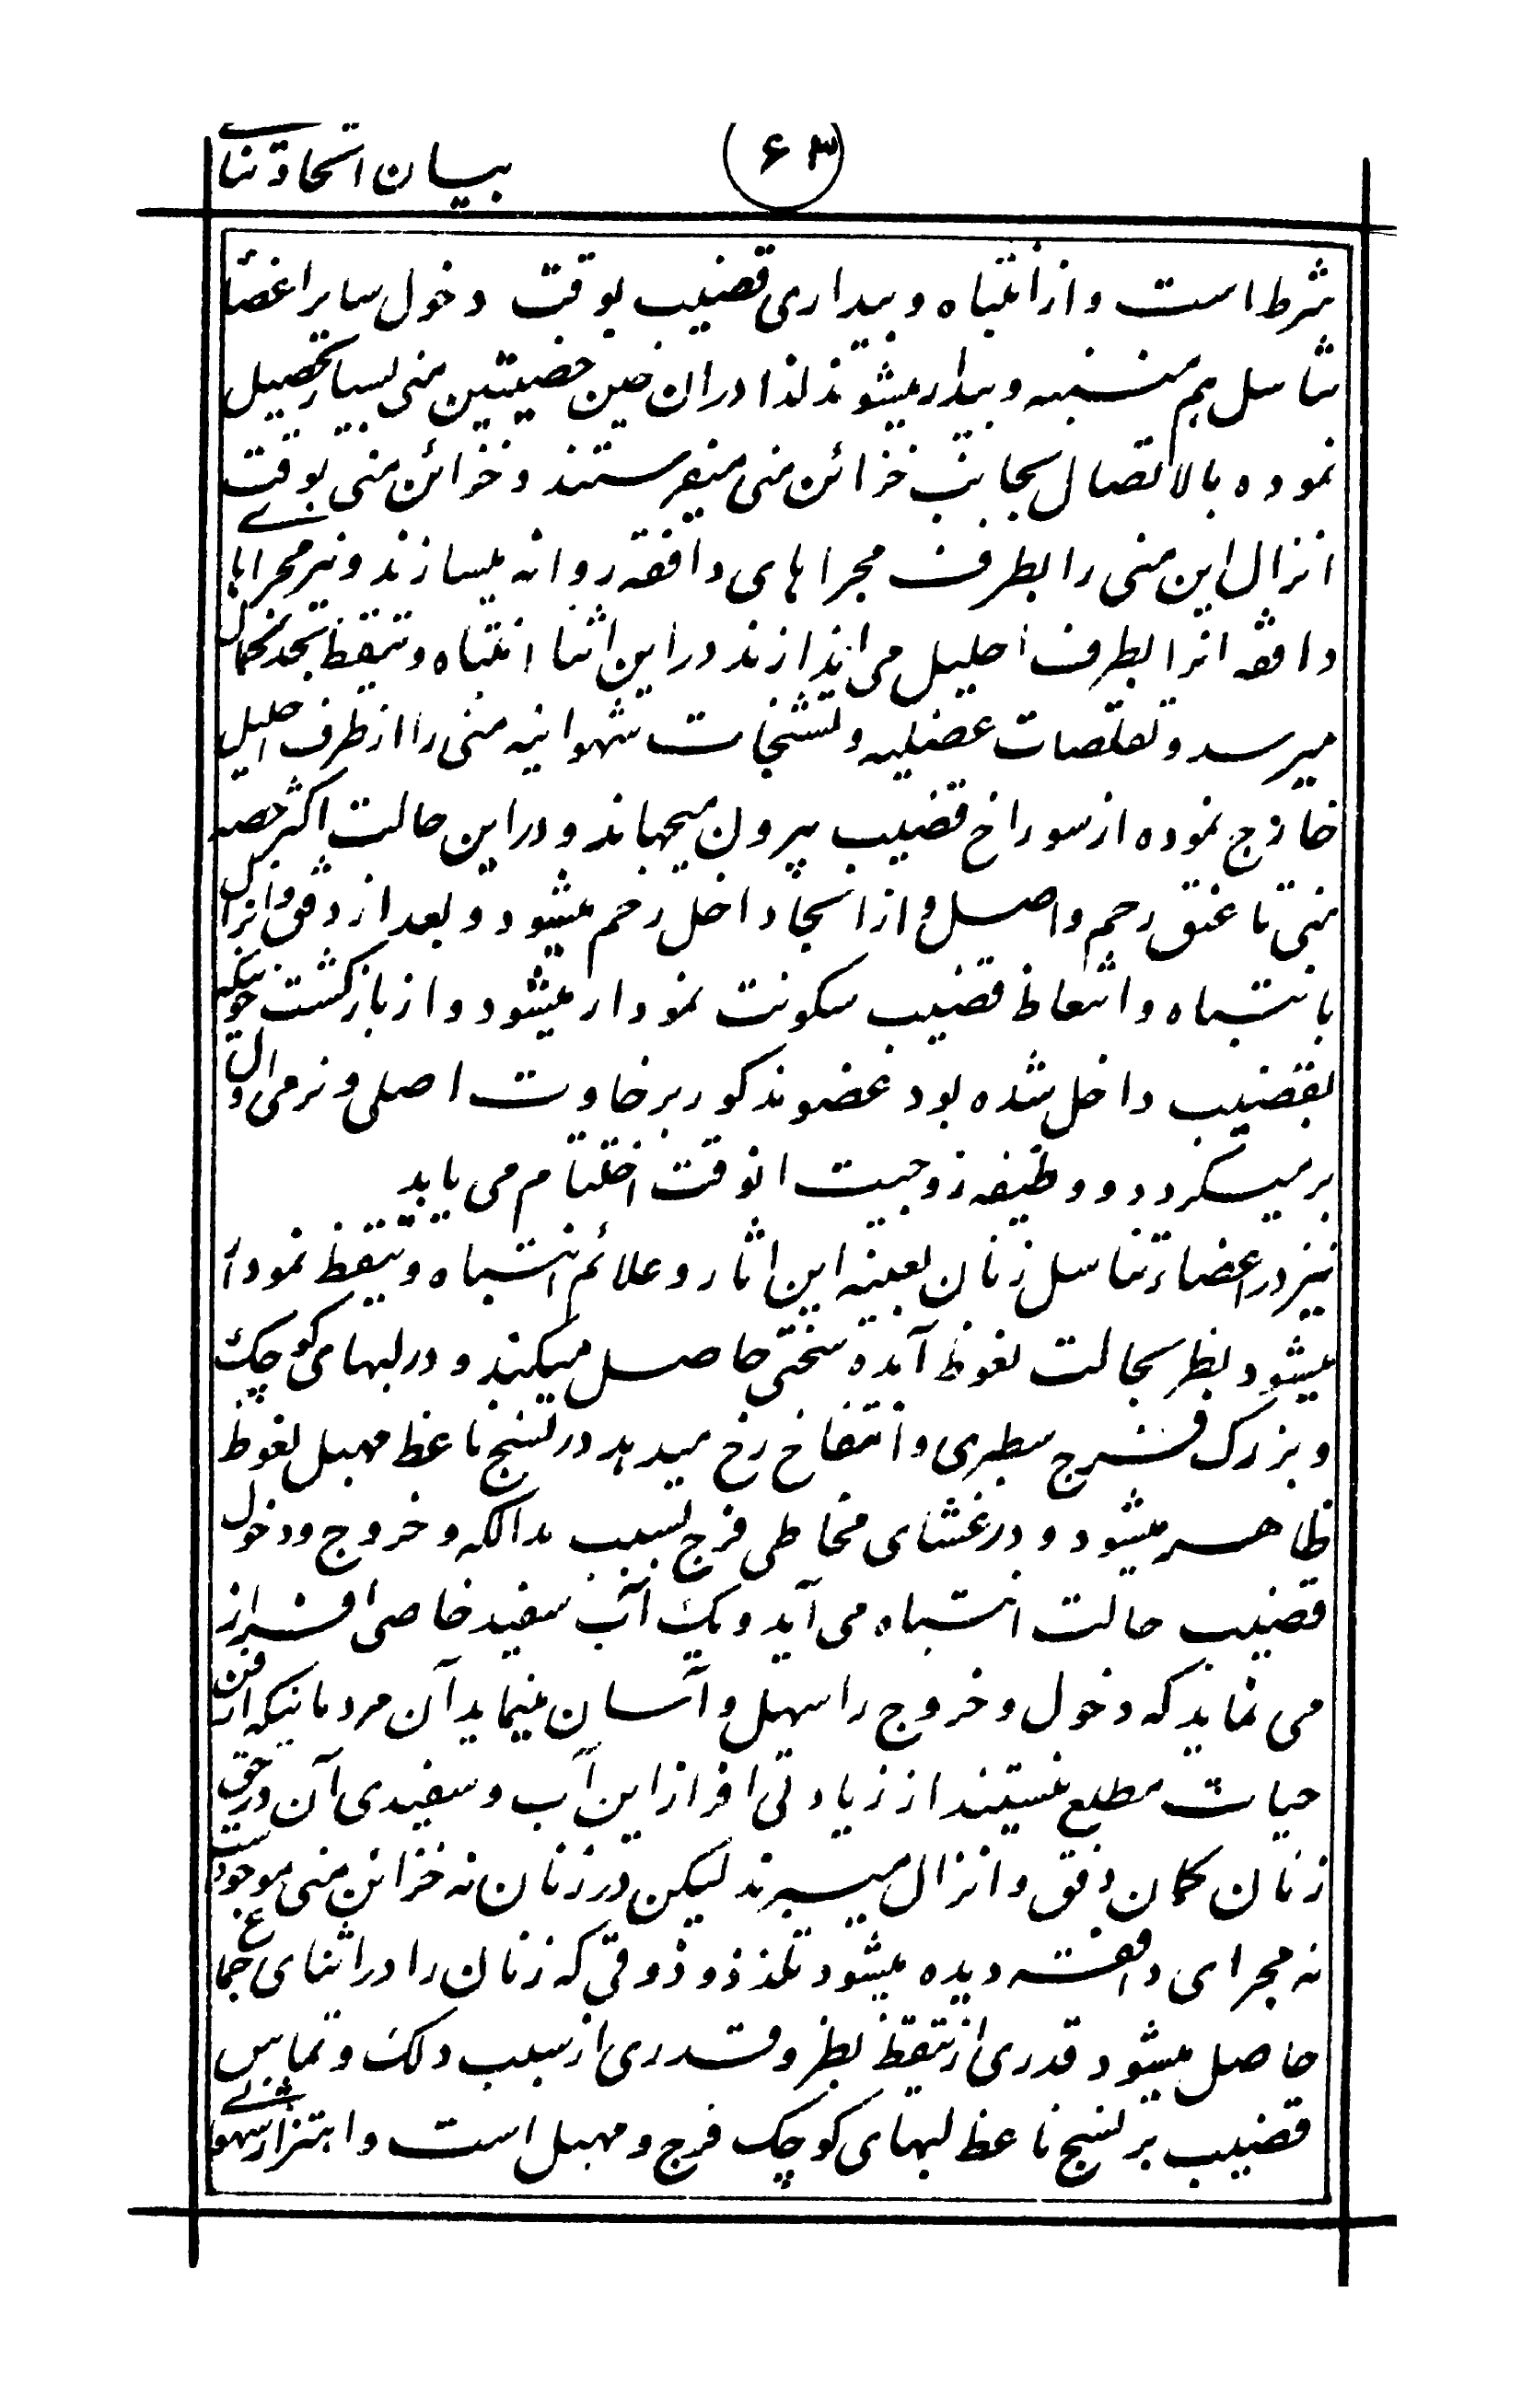 بیان اتحاد تناسلی
(۶۳)
شرط است و از انتباه و بیداری قضیب بوقت دخول سایر اعضا
تناسل هم منتبه و بیدار میشوند لذا در ان حین خصیتین منی بسیار تحصیل
نموده بالاتصال بجانب خزائن منی میفرستند و خزائن منی بوقت
انزال این منی را بطرف مجراهای دافقه روانه میسازند و نیز مجراهای
دافقه انرا بطرف احلیل می اندازند در این اثنا انتباه و تیقظ بحد کمال
میرسد و تقلصات عضلیه و تشنجات شهوانیه منی را از طرف احلیل
خارج نموده از سوراخ قضیب بیرون میجهاند و در این حالت اکثر حصه
منی تا عنق رحم واصل و از انجا داخل رحم میشود و بعد از دفق و انزال
بانتباه و انتعاظ قضیب سکونت نمودار میشود و از بازگشت خونیکه
بقضیب داخل شده بود عضو مذکور برخاوت اصلی و نرمی اول
برمیگردد و وظیفه زوجیت انوقت اختتام می یابد
نیز در اعضاء تناسل زنان بعینه این اثار و علائم انتباه و تیقظ نمودار
میشود بظر بحالت نعوظ آمده سختی حاصل میکند و در لبهای کوچک
و بزرک فرج سطبری و انتفاخ رخ میدهد در نسج ناعظ مهبل نعوظ
ظاهر میشود و در غشای مخاطی فرج بسبب مدالکه و خروج و دخول
قضیب حالت انتباه می آید و یک آب سفید خاصی افراز
می نماید که دخول و خروج را سهل و آسان مینماید آن مردمانیکه از فن
حیات مطلع نیستند از زیادتی افراز این آب و سفیدی آن در حق
زنان کمان دفق و انزال میبرند لیکن در زنان نه خزائن منی موجود است
نه مجرای دافقه دیده میشود تلذذ و ذوقی که زنان را در اثنای جماع
حاصل میشود قدری از تیقظ بظر و قدری از سبب دلک و تماس
قضیب بر نسج ناعظ لبهای کوچک فرج و مهبل است و اهتزاز شهوانی